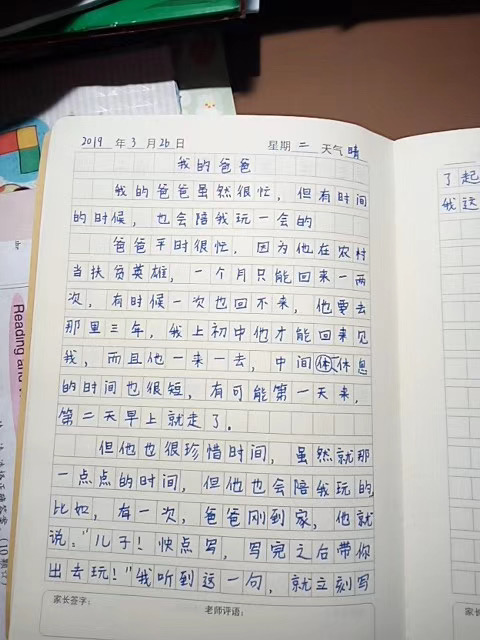 2019 年 3 月 26 日 星期 二 天气 晴
我的爸爸
我的爸爸虽然很忙，但有时间
的时候，也会陪我玩一会的
爸爸平时很忙，因为他在农村
当扶贫英雄，一个月只能回来一两
次，有时候一次也回不来，他要去
那里三年，我上初中他才能回来见
我，而且他一来一去，中间休息
的时间也很短，有可能第一天来，
第二天早上就走了。
但他也很珍惜时间，虽然就那
一点点的时间，但他也会陪我玩的，
比如，有一次，爸爸刚到家，他就
说："儿子！快点写，写完之后带你
出去玩！"我听到这一句，就立刻写
家长签字：
老师评语：
了起
我这
Reading and